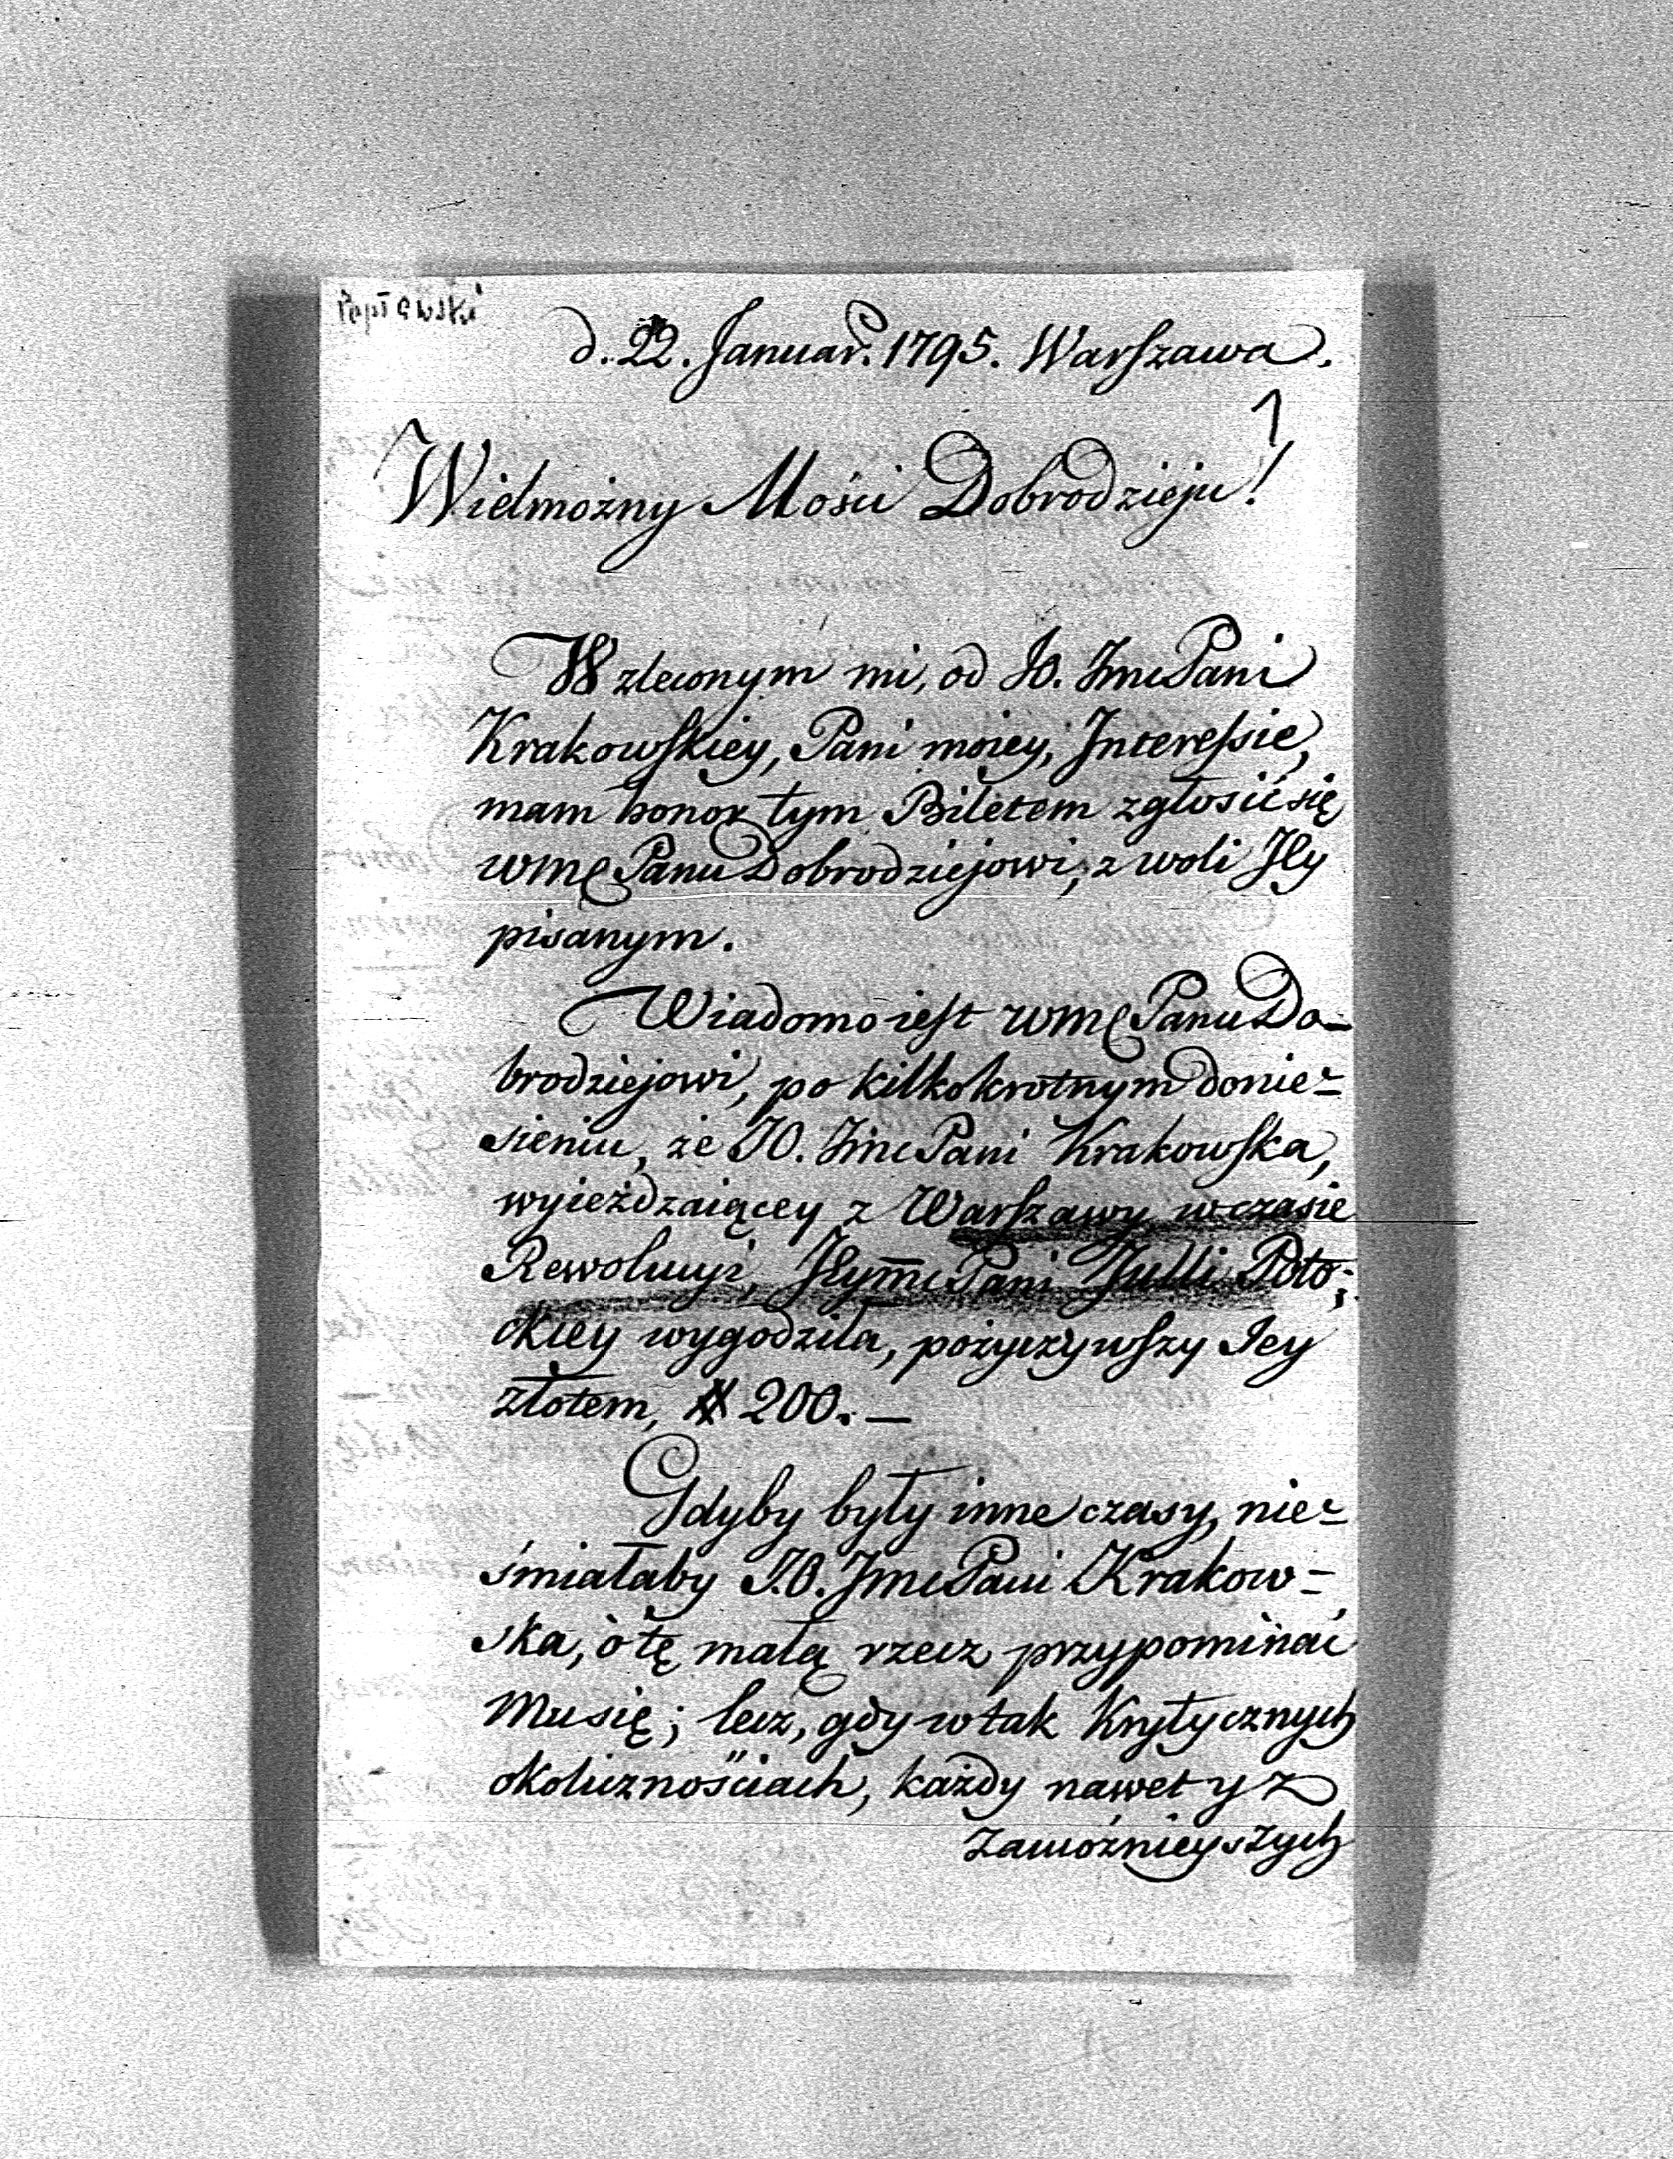 Popławski
d. 22. Januar. 1795. Warszawa.
1
Wielmożny Mości Dobrodzieju!
W zleconym mi, od JO. ImcPani
Krakowskiey, Pani moiey, Interessie,
mam honor tym Biletem zgłosić się
WmcPanuDobrodziejowi, z woli JEy
pisanym.
Wiadomo iest WmcPanuDo-
brodziejowi, po kilkokrotnym donie-
sieniu, że JO. ImcPani Krakowska,
wyieżdzaiącey z Warszawy w czasie
Rewolucyi, JEymcPani Julii Poto-
ckiey wygodziła, pożyczywszy Iey
złotem, # 200. —
Gdyby były inne czasy, nie-
śmiałaby J.O. JmcPani Krakow-
ska, ò tę małą rzecz przypominać
Musię; lecz, gdy w tak Krytycznych
okolicznościach, każdy nawet y z
Zamożnieyszych